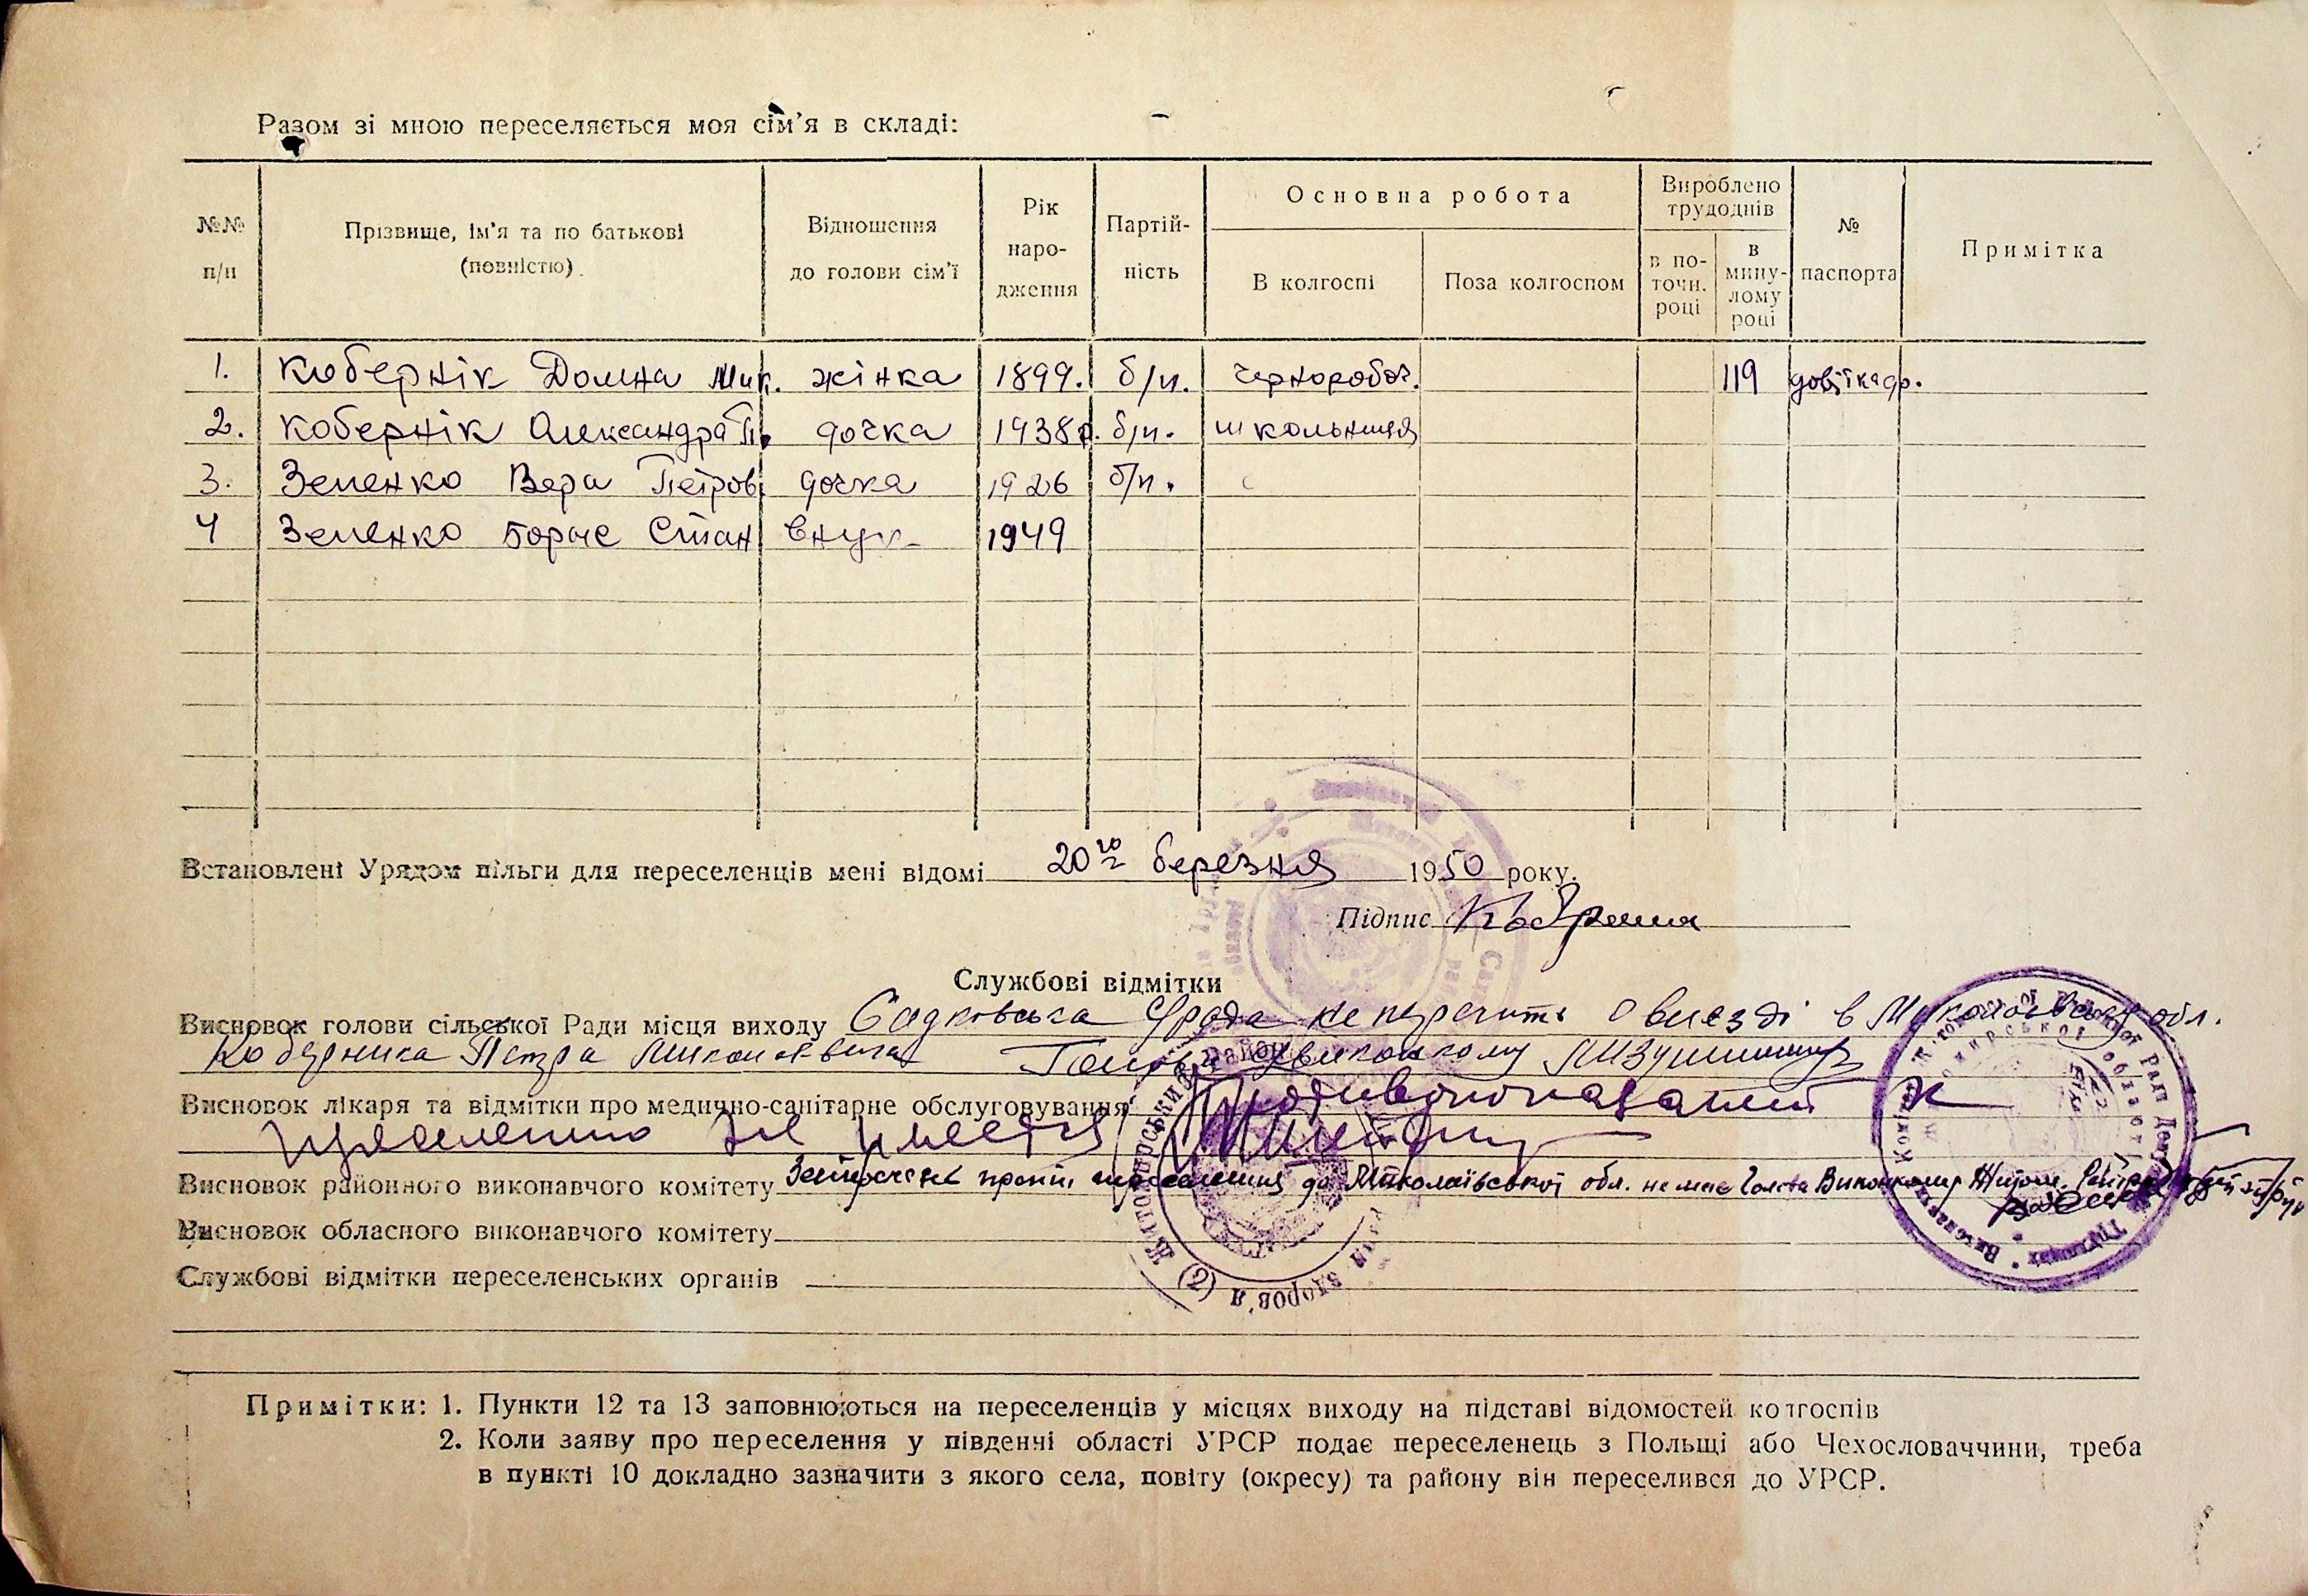 Разом зі мною переселяється моя сім'я в складі:
№№ п/п
Прізвище, ім'я та по батькові (повністю)
Відношення до голови сім'ї
Рік народження
Партійність
Основна робота
В колгоспі
Поза колгоспом
Вироблено трудоднів
в поточн. році
в минулому році
№ паспорта
Примітка
1. Кобернік Домна Мик. жінка 1899. б/п. чорнороб. 119
2. Кобернік Александра П. дочка 1938 р. б/п. школьниця
3. Зеленко Вера Петров дочка 1926 б/п.
4 Зеленко Борис Стан внук 1949
Встановлені Урядом пільги для переселенців мені відомі 20го березня 1950 року.
Підпис
Службові відмітки
Висновок голови сільської Ради місця виходу Садківська С/рада не перечить о виезді в Миколаївську обл.
Коберника Петра Миколаевича Голова
Висновок лікаря та відмітки про медично-санітарне обслуговування Противопоказаний к
переселению не имеется
Висновок районного виконавчого комітету Заперечень проти переселення до Миколаївської обл. немає Голова Виконкому Житом.
Висновок обласного виконавчого комітету
Службові відмітки переселенських органів
Примітки: 1. Пункти 12 та 13 заповнюються на переселенців у місцях виходу на підставі відомостей колгоспів
2. Коли заяву про переселення у південні області УРСР подає переселенець з Польщі або Чехословаччини, треба
в пункті 10 докладно зазначити з якого села, повіту (окресу) та району він переселився до УРСР.